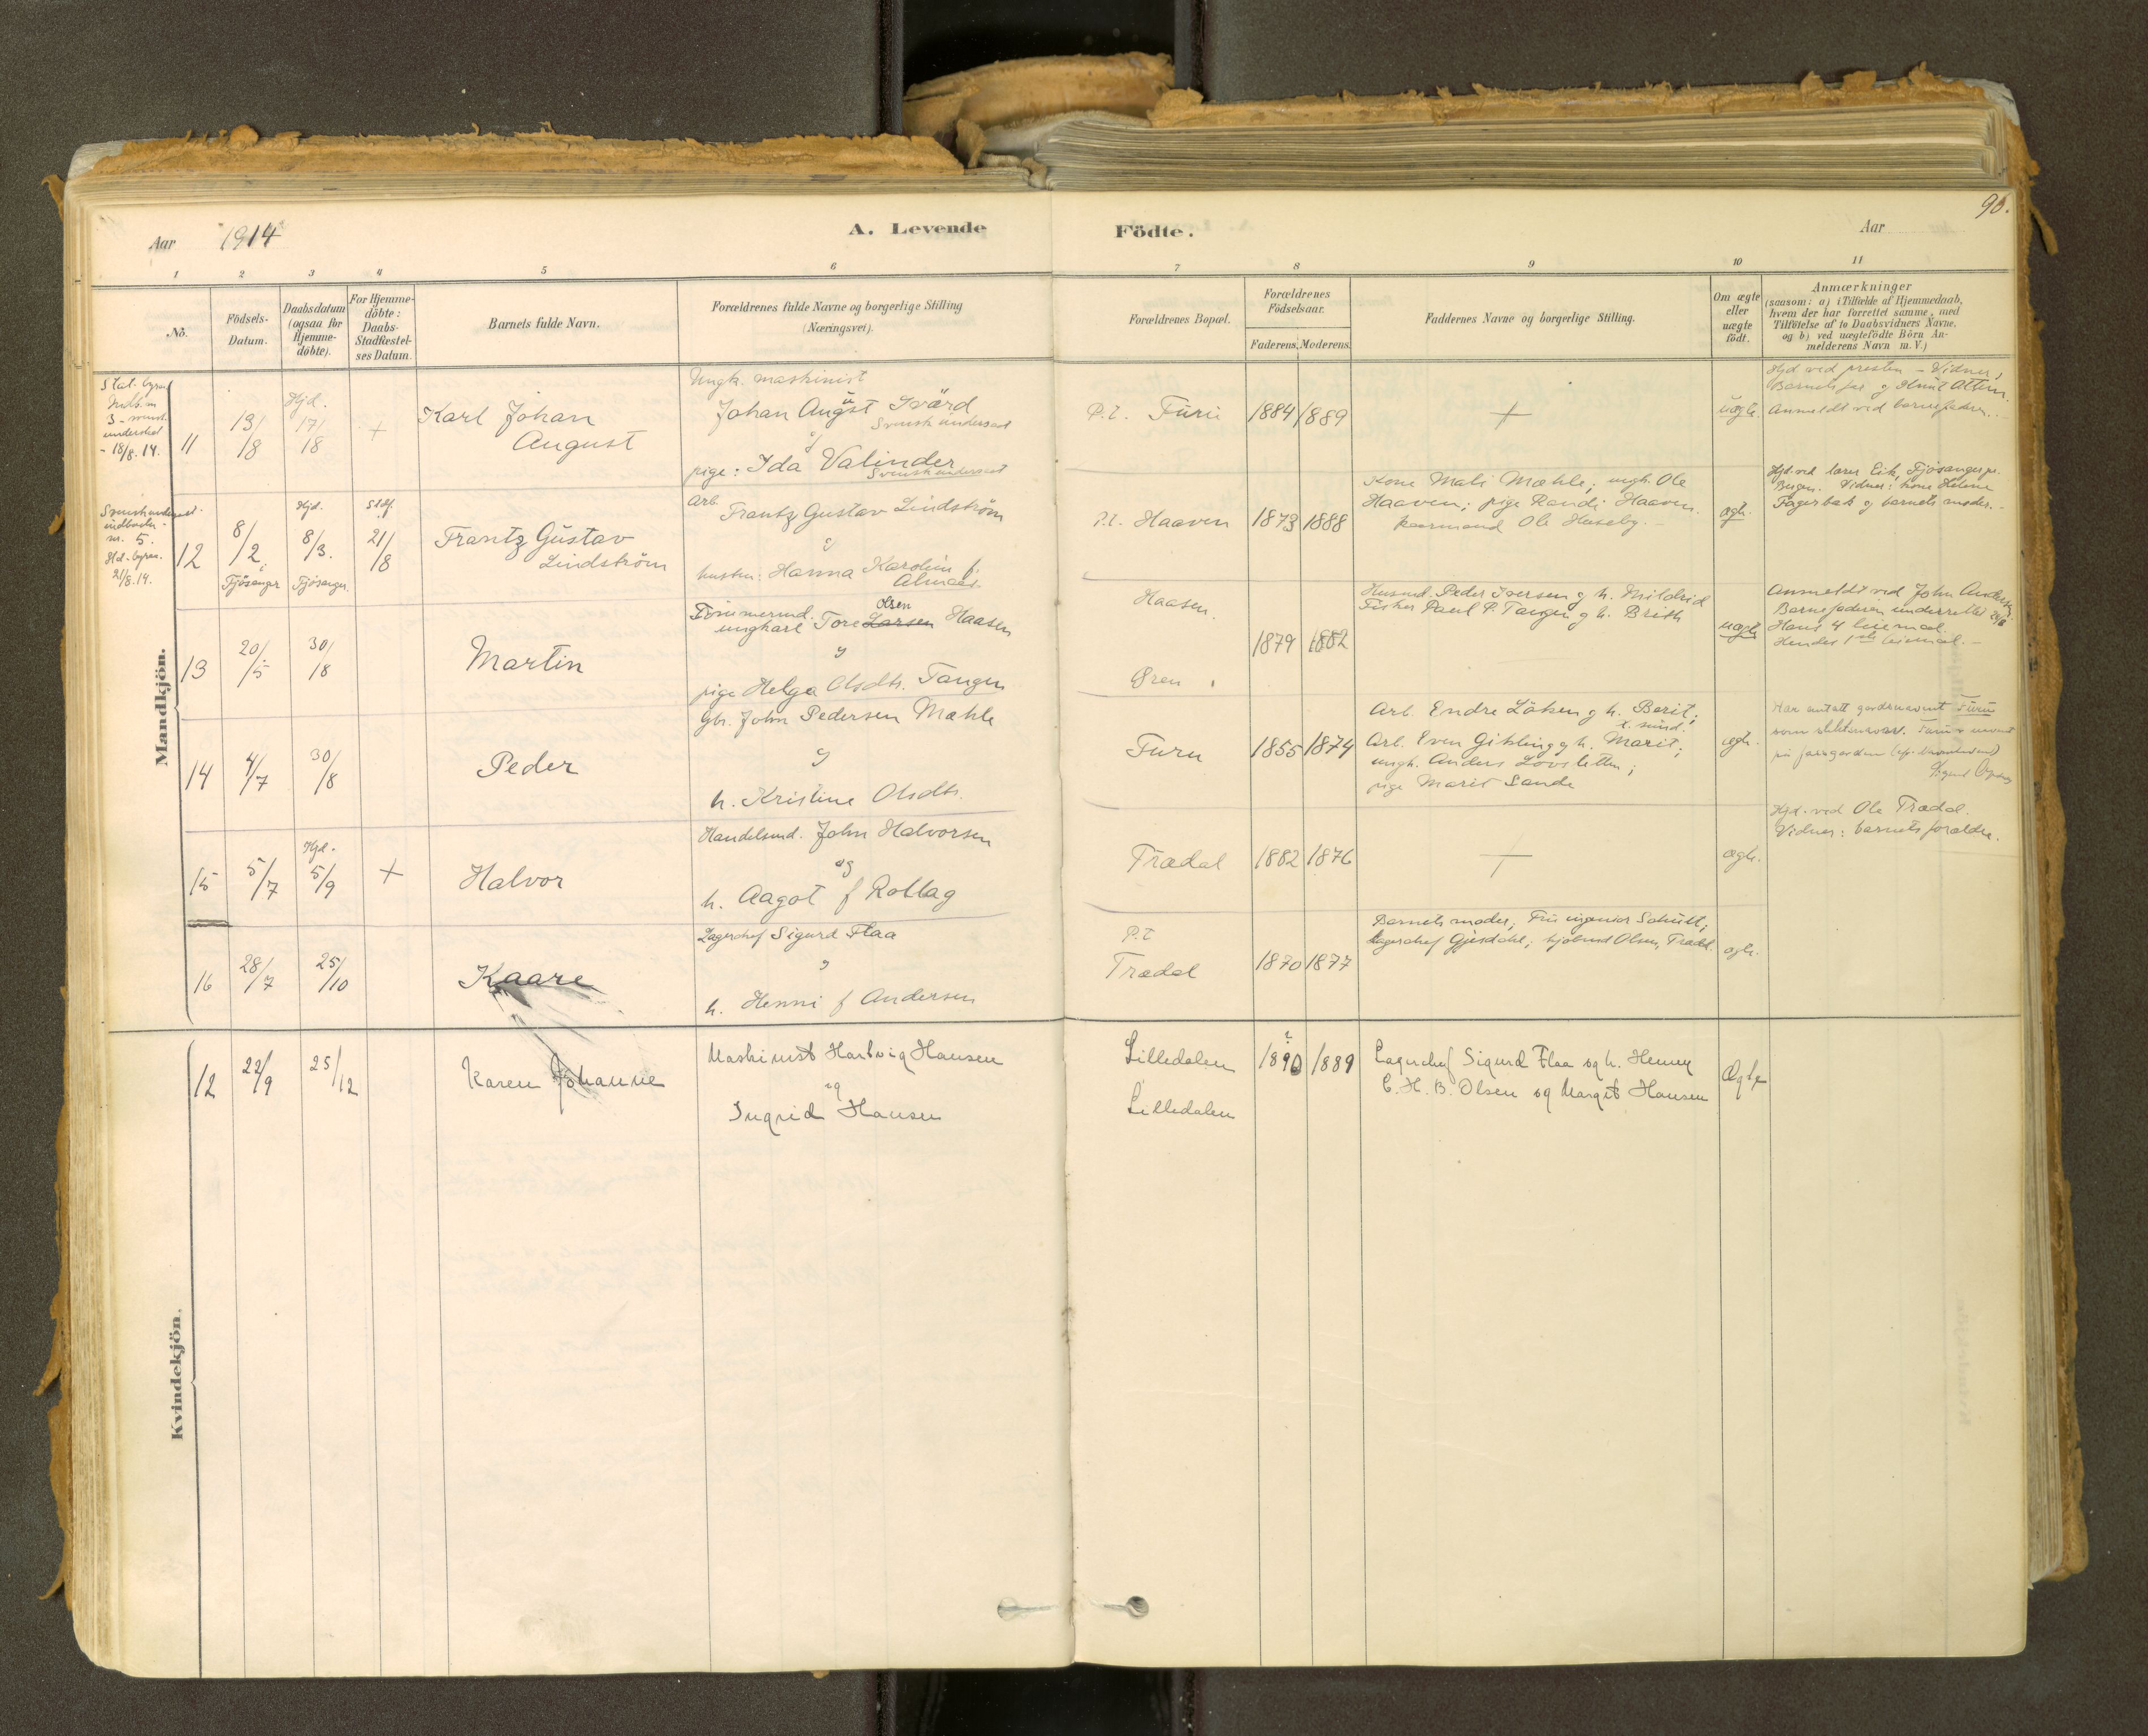 90.
Aar 1914
A. Levende Födte.
Aar
1 2 3 4 5 6 7 8 9 10 11
No.
Födsels-Datum.
Daabsdatum (ogsaa for Hjemme-döbte).
For Hjemme-döbte: Daabs-Stadfæstel-ses Datum.
Barnets fulde Navn.
Forældrenes fulde Navne og borgerlige Stilling
(Næringsvei).
Forældrenes Bopæl.
Forældrenes Födselsaar.
Faderens. Moderens.
Faddernes Navne og borgerlige Stilling.
Om ægte eller uægte födt.
Anmærkninger
(saasom: a) i Tilfælde af Hjemmedaab,
hvem der har forrettet samme, med
Tilföielse af to Daabsvidners Navne.
og b) ved uægtefödte Börn An-
melderens Navn m. V.)
Mandkjön.
Stat. byraa
Indb. nr
3 - svensk
undersaat
- 18/8. 14.
11
13/8
Hjd.
17/8
+
Karl Johan
August
Ungk. maskinist
Johan August Svärd
Svensk undersaat
&
pige: Ida Valinder
Svensk undersaat
P.t. Furu
1884 1889
+
uægte.
Hjd ved presten - Vidner,
Barnets far og Knut
Anmeldt ved barnefaderen. -
Svensk undersaat.
nr. 5.
Std. byraa.
21/8.14.
12
8/2.
Fjösanger
Hjd.
8/3.
Fjösanger
Stdf.
21/8
Frantz Gustav
Lindström
Arb.
Frantz Gustav Lindström
&
hustru: Hanna Karolin f.
P.t. Haaven
1873 1888
Kone Mali Mæhle; ungk. Ole
Haaven; pige Randi Haaven.
Ole Huseby. -
ægte.
Hjd. ved lærer Eik, Fjösanger pr.
Bergen. Vidner: kone Helene
Fagerbak og barnets moder. -
13
20/5
30/8
Martin
Tömmermd.
ungkarl Tore Larsen Olsen Haasen
&
pige Helga Olsdtr. Tangen
Haasen
Øren
1879 1882
Husmd. Peder Iversen og h. Mildrid
Fisker Paul P. Tangen og h. Brith
uægte
Anmeldt ved John
Barnefaderen underrettet
Hans 4 leiemaal.
Hendes 1ste leiemaal. -
14
4/7
30/8
Peder
Gbr. John Pedersen Mæhle
&
h. Kristine Olsdtr.
Furu
1855 1874
Arb. Endre Löken og h. Berit;
Arb. Even Gikling og h. Marit;
ungk. Anders Lovsletten;
pige Marit Sande
ægte.
Har antatt gardsnavnet Furu
som slektsnavn. Furu er navnet
på farsgarden
Sigurd
15
5/7
Hjd.
5/9
+
Halvor
Handelsmd. John Halvorsen
og
h. Aagot f Rollag
Trædal
1882 1876
+
ægte.
Hjd. ved Ole Trædal.
Vidner: barnets forældre.
16
28/7
25/10
Kaare
Lagerchef Sigurd Flaa
&
h. Henni f Andersen
P.t
Trædal
1870 1877
Barnets moder, Fru ingeniör Schult;
Lagerchef Gjesdahl; kjöbmd Olsen, Trædal.
ægte.
Kvindekjön.
12
22/9
25/12
Karen Johanne
Maskinist Hartvig Hansen
og
Ingrid Hansen
Lilledalen
Lilledalen
?
1890 1889
Lagerchef Sigurd Flaa og h. Henny
C. H. B. Olsen og Margit Hansen
Ægte